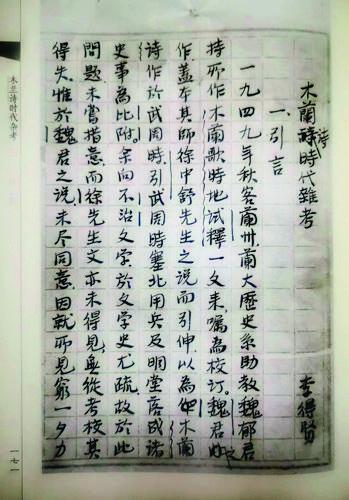 木蘭詩時代雜考
李得賢
一、引言
一九四九年秋客蘭州，蘭大歷史系助教魏郁君
持所作木蘭歌時地試釋一文来，嘱為校订。魏君此文
作，盖本其師徐中舒先生之说而引伸，以為木蘭
诗作於武周時，引武周時塞北用兵及明堂落成诸
史事為比附。余向不治文学，於文学史尤疏，故於此
問題未嘗措意，而徐先生文亦未得見，無從考校其
得失。惟於魏君之说，未尽同意，因就所見，窮一夕力
木兰诗时代杂考
一七一